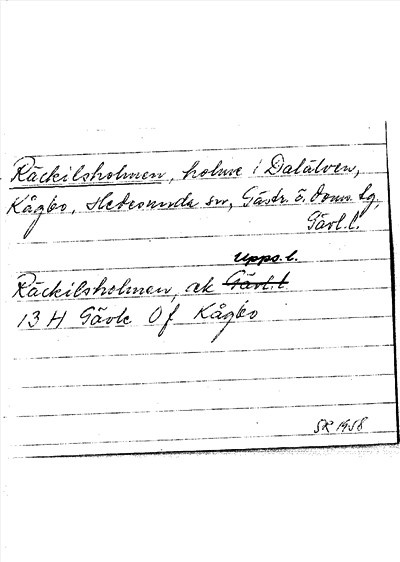 Räckilsholmen, holme i Dalälven,
Kågbo, Hedesunda sn, Gästr. ö. doms. sg,
Gävl. l.
Upps. l.
Räckilsholmen, ek Gävl. l.
13 H Gävle 0f Kågbo
SR 1958